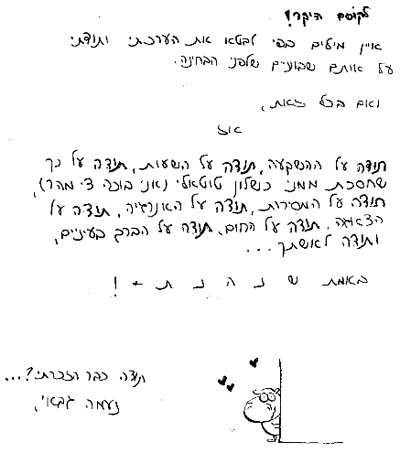 לקוסם היקר!
אין מילים בפי לבטא את הערכתי ותודתי
על אותם שבועיים שלפני הבחינה.
ואם בכל זאת,
אז
תודה על ההשקעה, תודה על השעות, תודה על כך
שחסכת ממני כשלון טוטאלי (אני בוכה די מהר),
תודה על המסירות, תודה על האנרגיה, תודה על
הדאגה. תודה על החום, תודה על הברק בעיניים,
ותודה לאשתך...
באמת ש נ ה נ ת י !
תודה כבר הזכרתי?...
נעמה גבאי.